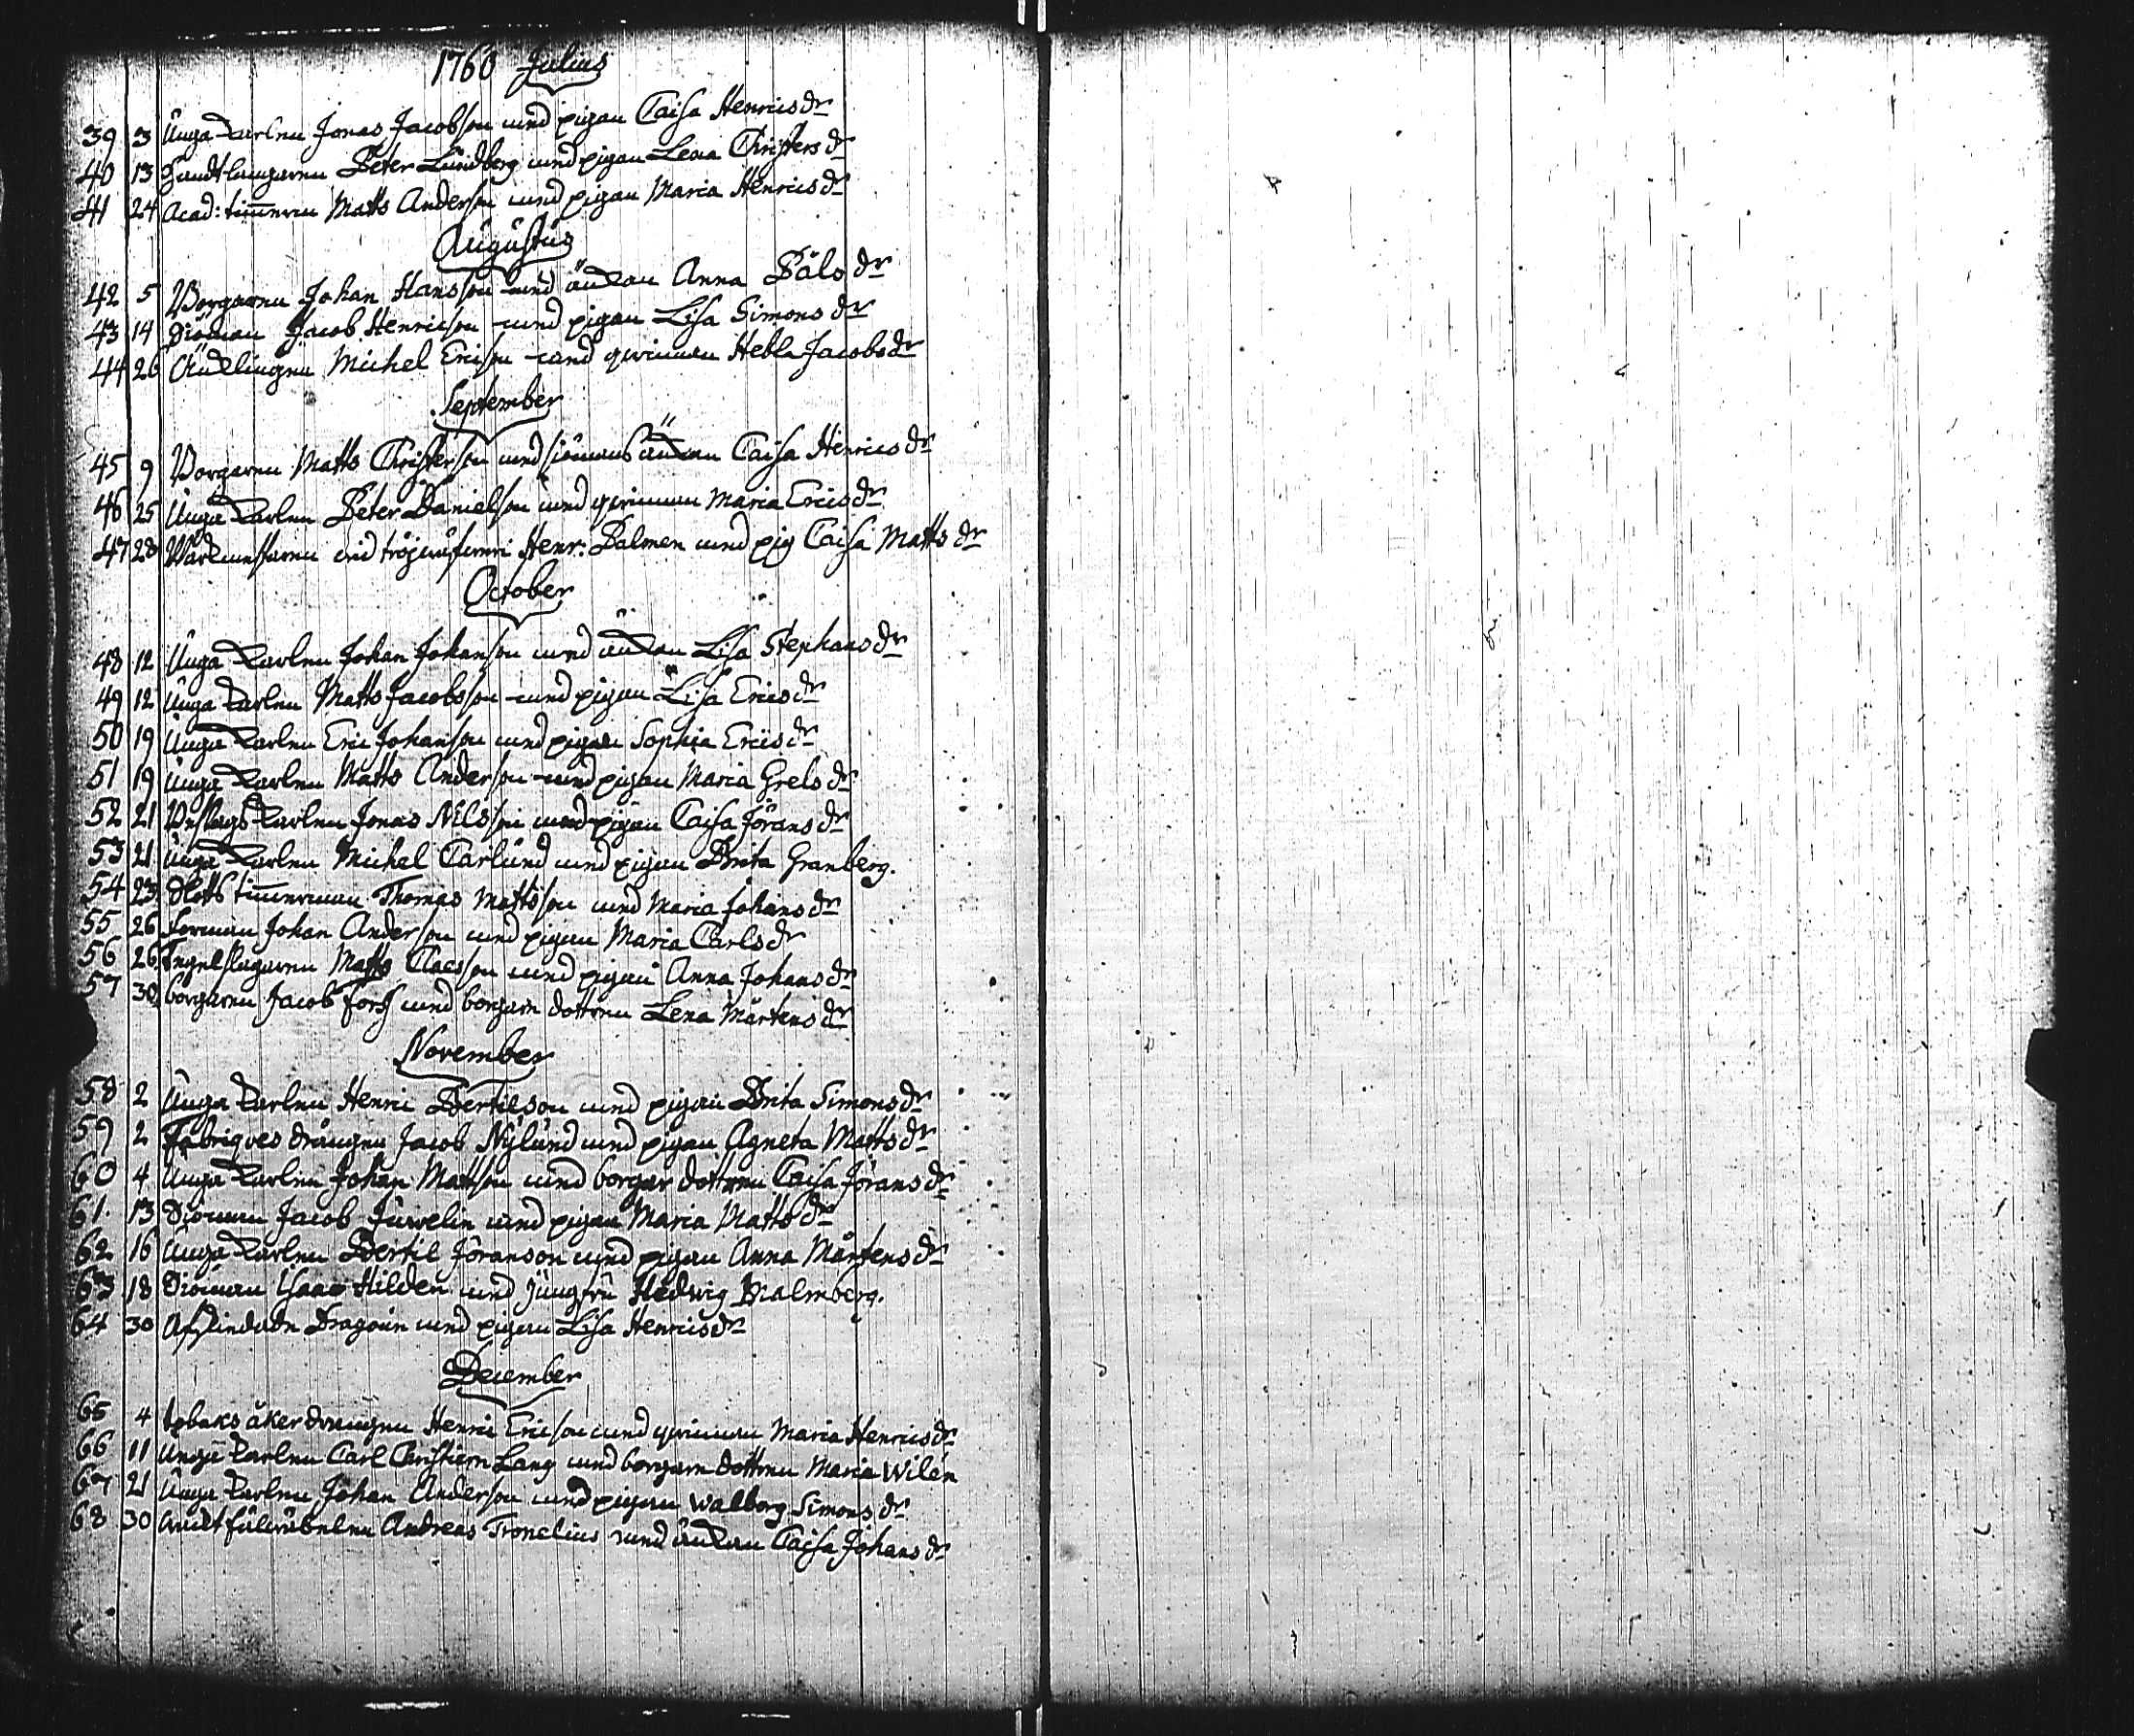 1760 Julius
39 3 Unga Karlen Jonas Jacobson med pigan Caisa Henricsdr
40 13 Handtlangaren Peter Lundberg med pigan Lena Christersdr
41 24 Acad: timmerm Matts Anderson med pigan Maria Henricsdr
Augustus
42 5 Borgaren Johan Hansson med änkan Anna Pålsdr
43 14 Siöman Jacob Henricson med pigan Lisa Simonsdr
44 26 Änklingen Michel Ericson med qwinnan Hebla Jacobsdr
September
45 9 Borgaren Matts Christerson med siömans änkan Caisa Henricsdr
46 25 Unga Karlen Peter Danielson med qwinnan Maria Ericsdr
47 28 wid Henr: Palmen med pig Caisa Mattsdr
October
48 12 Unga Karlen Johan Johanson med änkan Lisa Stephansdr
49 12 Unga Karlen Matts Jacobsson med pigan Lisa Ericsdr
50 19 Unga Karlen Eric Johanson med pigan Sophia Ericsdr
51 19 Unga Karlen Matts Anderson med pigan Maria Grelsdr
52 21 Karlen Jonas Nilsson med pigan Caisa Jöransdr
53 21 Unga Karlen Michel Carlund med pigan Brita Granberg.
54 23 Slotts timmerman Thomas Mattsson med Maria Johansdr
55 26 Forman Johan Anderson med pigan Maria Carlsdr
56 26 Tegelslagaren Matts Claesson med pigan Anna Johansdr
57 30 borgaren Jacob Forss med borgare dottren Lena Mårtensdr
November
58 2 Unga Karlen Henric Bertilson med pigan Brita Simonsdr
59 2 Fabriqves drängen Jacob Nylund med pigan Agneta Mattsdr
60 4 Unga Karlen Johan Mattson med borgar dottren Caisa Jöransdr
61 13 Siöman Jacob Juvelin med pigan Maria Mattsdr
62 16 Unga Karlen Bertil Jöranson med pigan Anna Mårtensdr
63 18 Siöman Isaac Hilden med Jungfru Hedwig Malmberg.
64 30 Afskedade Dragoun med pigan Lisa Henricsdr
December
65 4 tobaks åker drängen Henric Ericson med qwinnan Maria Henricsdr
66 11 Unga Karlen Carl Christiern Lang med borgare dottren Maria Wilén
67 21 Unga Karlen Johan Anderson med pigan Walborg Simonsdr
68 30 Andreas Tronelius med änkan Caisa Johansdr